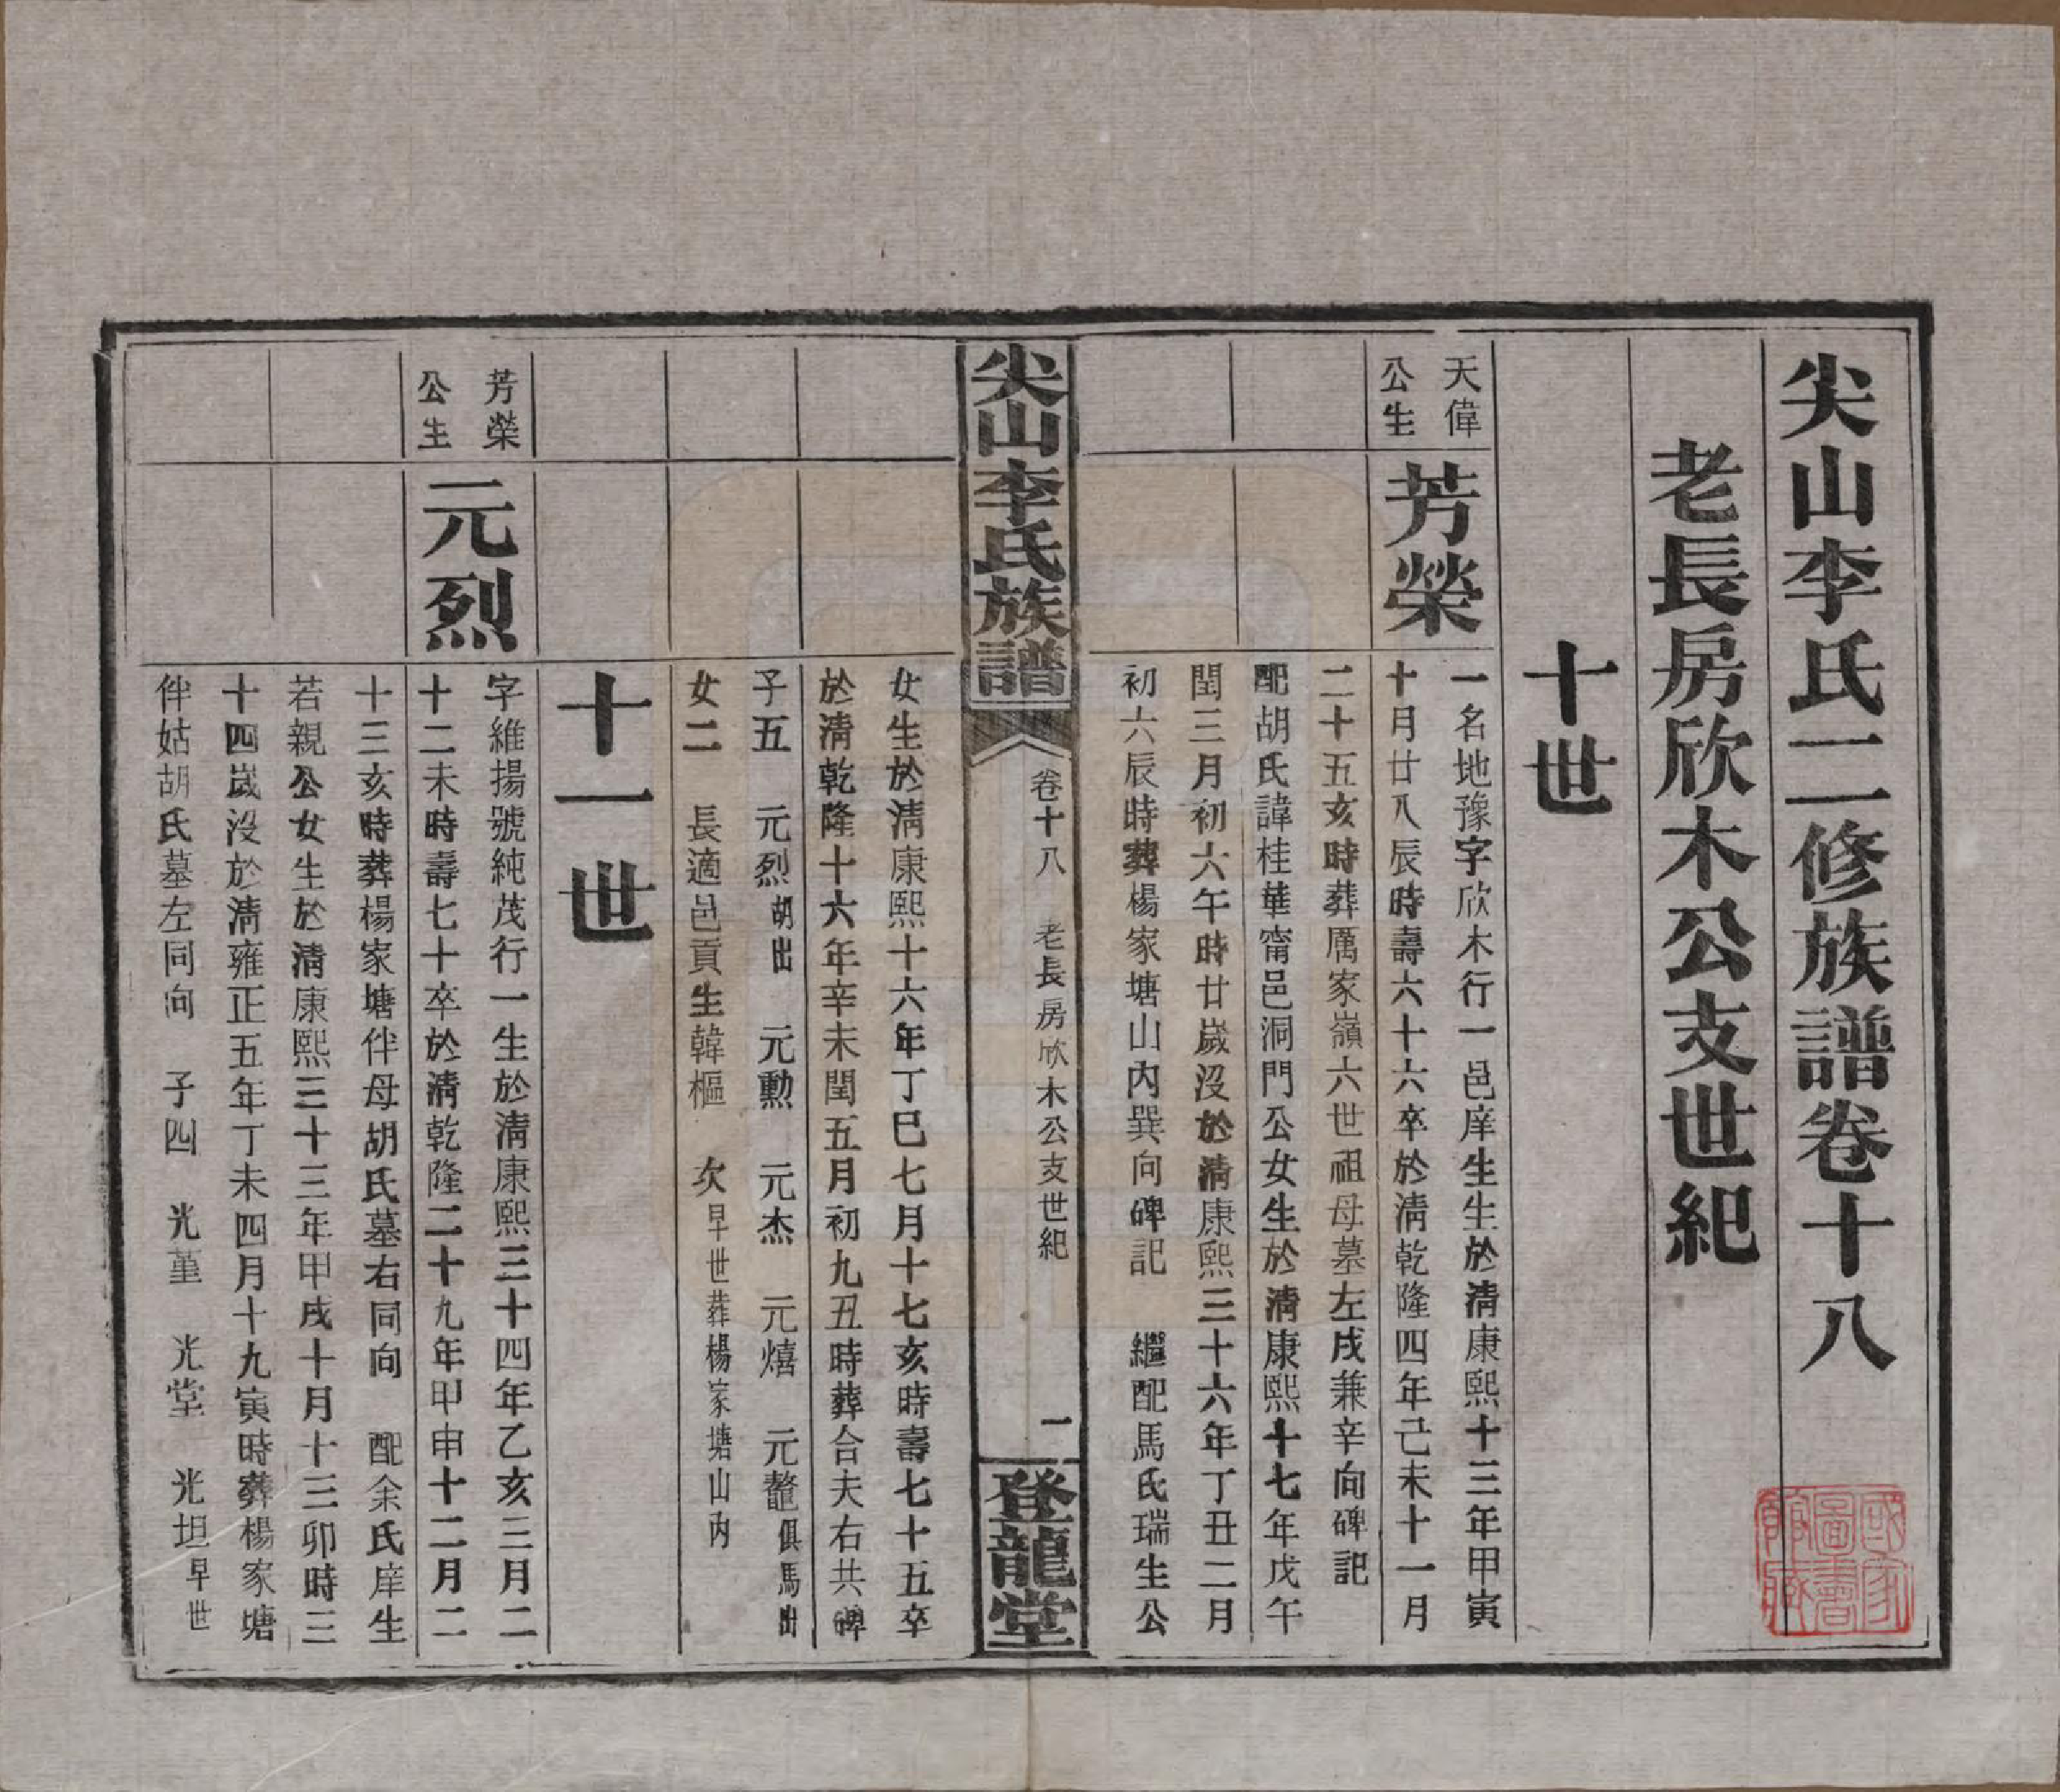 尖山李氏二修族譜卷十八
老長房欣木公支世紀
十世
天偉
公生
芳榮
一名地豫字欣木行一邑庠生生於清康熙十三年甲寅
十月廿八辰時壽六十六卒於清乾隆四年己未十一月
二十五亥時葬厲家嶺六世祖母墓左戌兼辛向碑記
配胡氏諱桂華甯邑洞門公女生於清康熙十七年戊午
閏三月初六午時廿歲沒於清康熙三十六年丁丑二月
初六辰時葬楊家塘山內巽向碑記 繼配馬氏瑞生公
尖山李氏族譜
卷十八 老長房欣木公支世紀
一
登龍堂
女生於清康熙十六年丁巳七月十七亥時壽七十五卒
於清乾隆十六年辛未閏五月初九丑時葬合夫右共碑
子五 元烈胡出 元勳 元杰 元熺 元鼇俱馬出
女二 長適邑貢生韓樞 次早世葬楊家塘山內
十一世
芳榮
公生
元烈
字維揚號純茂行一生於清康熙三十四年乙亥三月二
十二未時壽七十卒於清乾隆二十九年甲申十二月二
十三亥時葬楊家塘伴母胡氏墓右同向 配余氏庠生
若親公女生於清康熙三十三年甲戌十月十三卯時三
十四歲沒於清雍正五年丁未四月十九寅時葬楊家塘
伴姑胡氏墓左同向 子四 光堇 光堂 光坦早世
國家
圖書
館藏